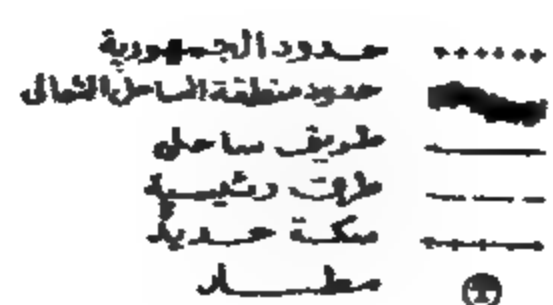 حدود الجمهورية
حدود منطقة الساحل الشمالى
طريق ساحلى
طرق رئيسية
سكة حديد
مطار